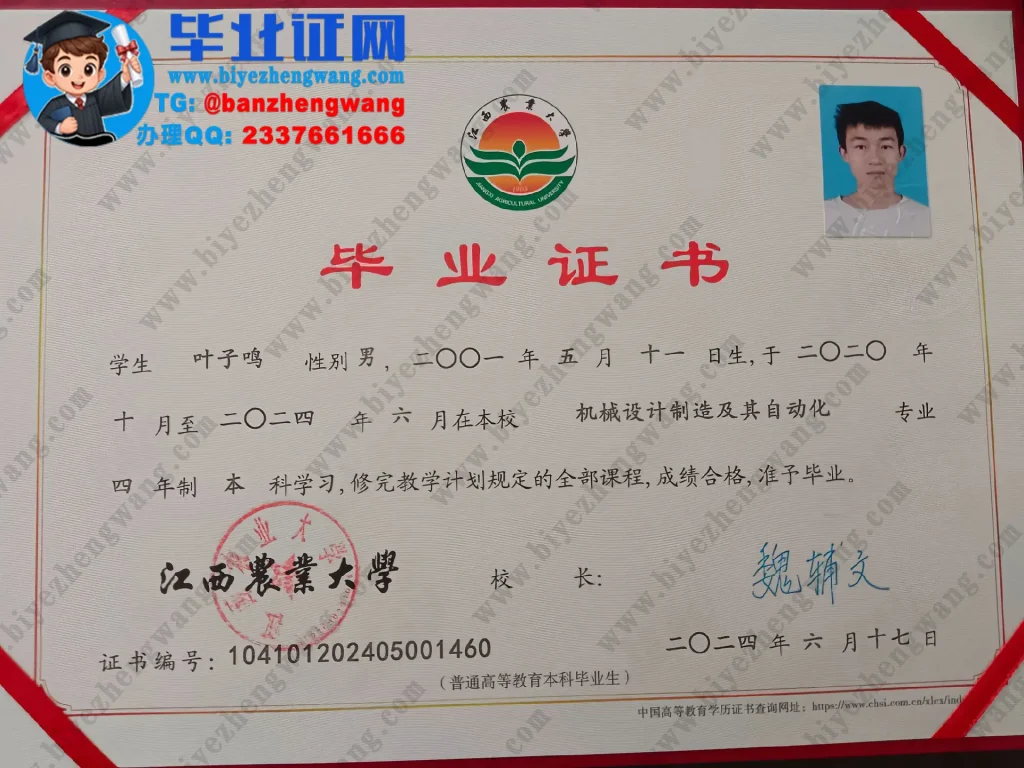 毕业证网
www.biyezhengwang.com
TG: @banzhengwang
办理QQ: 2337661666
江西农业大学
1905
JIANGXI AGRICULTURAL UNIVERSITY
毕业证书
学生 叶子鸣 性别 男, 二〇〇一 年 五 月 十一 日生,于 二〇二〇 年
十 月至 二〇二四 年 六 月在本校 机械设计制造及其自动化 专业
四 年制 本 科学习,修完教学计划规定的全部课程,成绩合格,准予毕业。
江西農業大學 校 长: 魏辅文
证书编号: 104101202405001460
二〇二四 年 六 月十七 日
(普通高等教育本科毕业生)
中国高等教育学历证书查询网址: https://www.chsi.com.cn/xlcx/ind
www.biyezhengwang.com